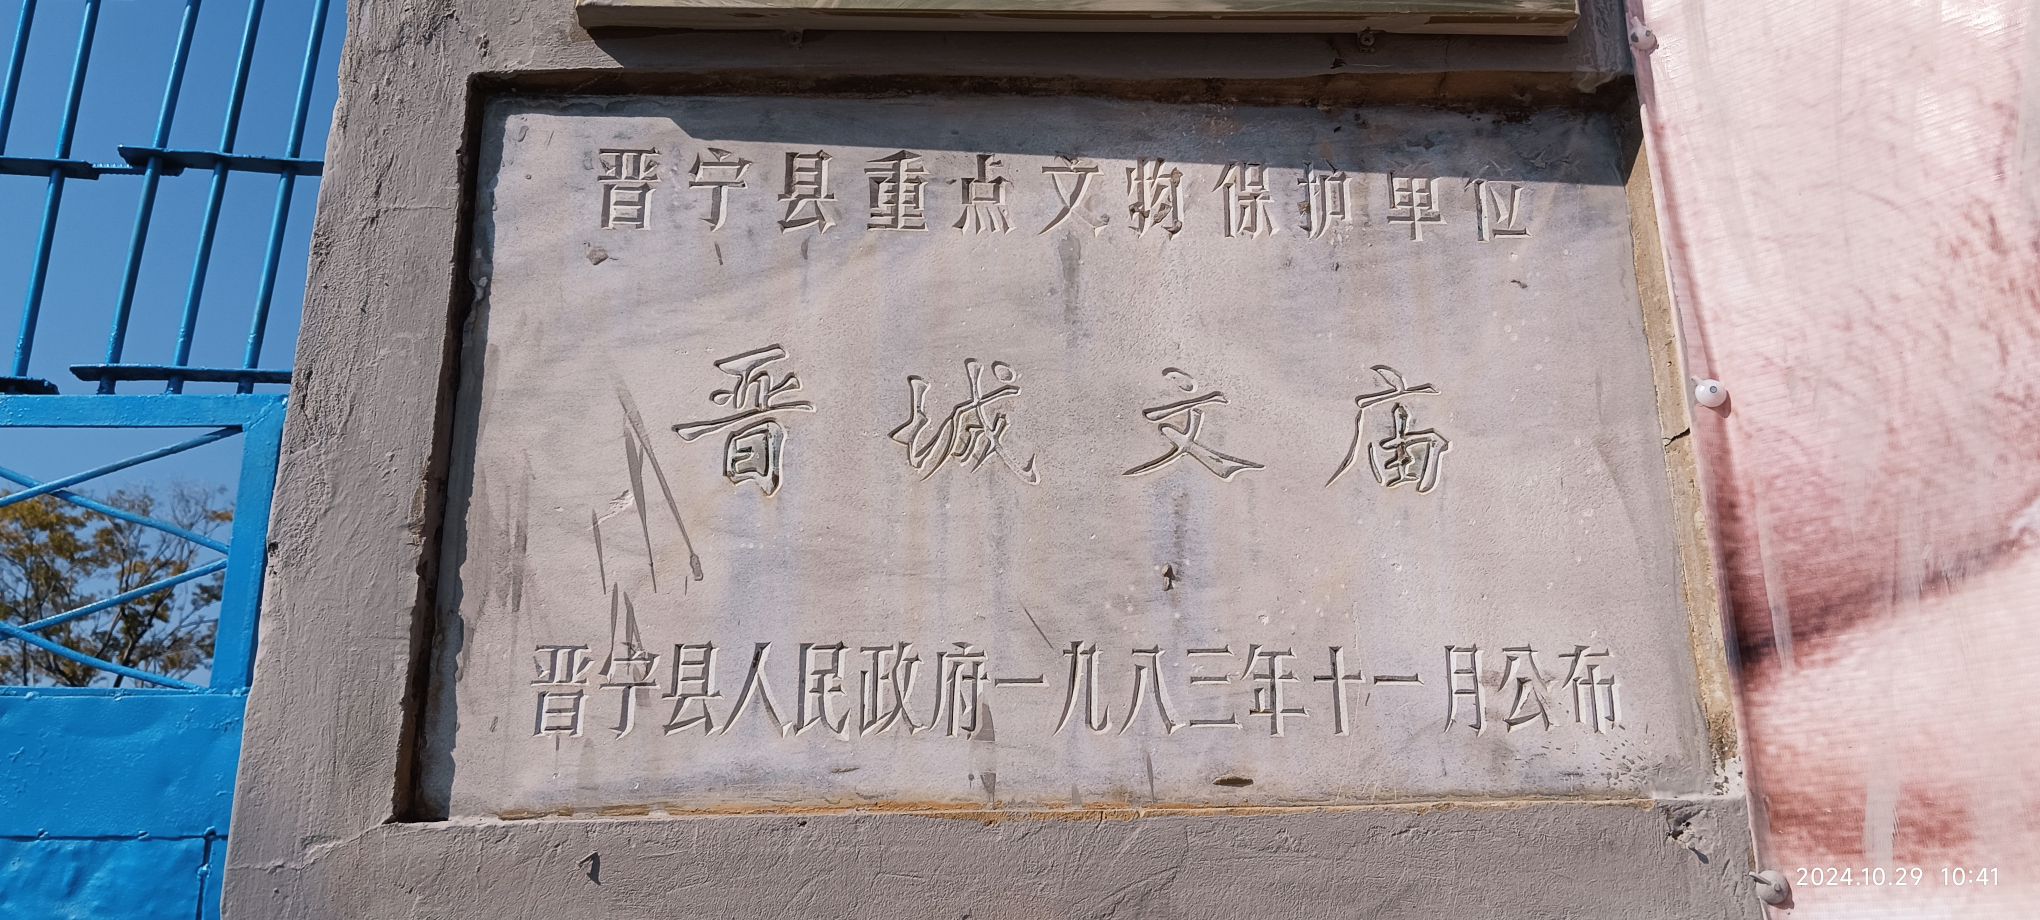 晋宁县重点文物保护单位
晋城文庙
晋宁县人民政府一九八三年十一月公布
2024.10.29 10:41